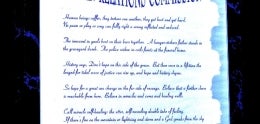 RELATIONS COMMISSION
Human beings suffer, they torture one another, they get hurt and get hard.
No poem or play or song can fully right a wrong inflicted and endured.
The innocent in gaols beat on their bars together. A hunger-striker's father stands in
the graveyard dumb. The police widow in veils faints at the funeral home.
History says, Don't hope on this side of the grave. But then once in a lifetime the
longed for tidal wave of justice can rise up, and hope and history rhyme.
So hope for a great sea change on the far side of revenge. Believe that a further shore
is reachable from here. Believe in miracles and cures and healing wells.
Call miracle self-healing: the utter, self-revealing double take of feeling.
If there's fire on the mountain or lightning and storm and a God speaks from the sky